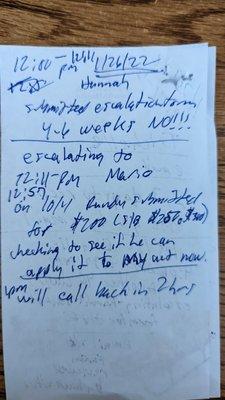 12:00 - 12:11 1/26/22
pm
Hannah
submitted escalation form
4-6 weeks NO!!!
escalating to
12:11 pm Mario
12:57
on 10/4 Rundy submitted
for $200 LSIB
checking to see if he can
apply it to my act now.
1pm will call back in 2 hrs